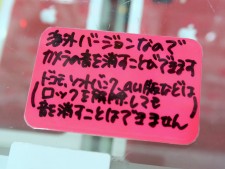 海外バージョンなので
カメラの音を消すことができます
(ドコモ、ソフトバンク、au版などは
ロックを解除しても
音を消すことはできません)